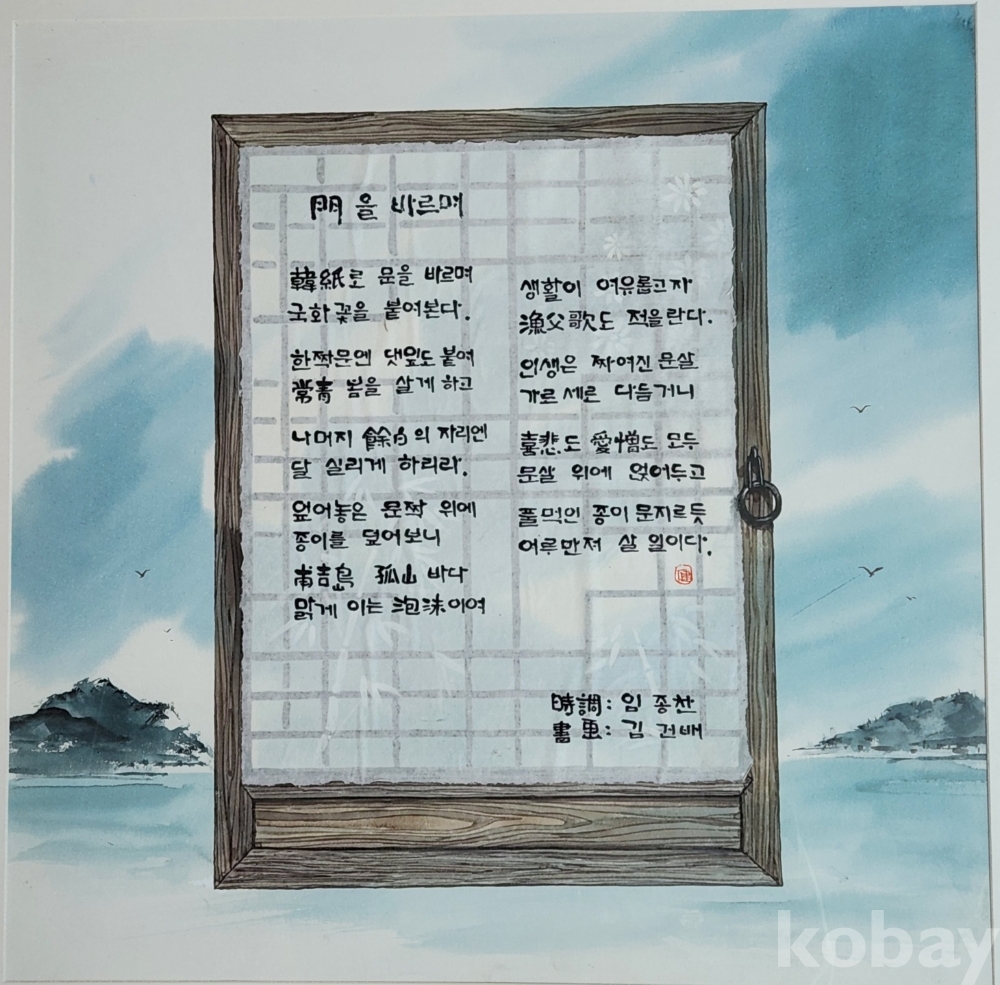 門을 바르며
韓紙로 문을 바르며
국화꽃을 붙여본다.
한짝문엔 댓잎도 붙여
常靑 봄을 살게 하고
나머지 餘白의 자리엔
달 실리게 하리라.
엎어놓은 문짝 위에
종이를 덮어보니
甫吉島 孤山 바다
맑게 이는 泡沫이여
생활이 여유롭고자
漁父歌도 적을란다.
인생은 짜여진 문살
가로 세로 다듬거니
喜悲도 愛憎도 모두
문살 위에 얹어두고
풀먹인 종이 문지르듯
어루만져 살 일이다.
時調: 임종찬
書畫: 김건배
kobay